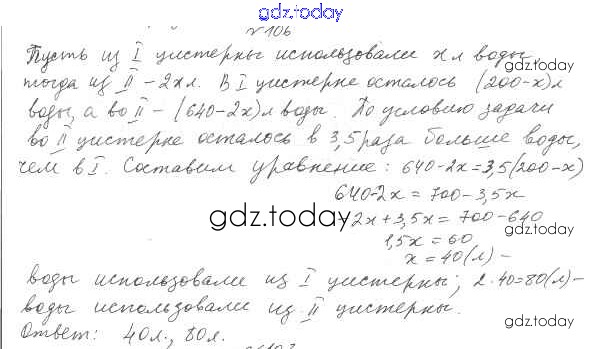 gdz.today
№106
Пусть из I цистерны использовали x л воды,
тогда из II – 2x л. В I цистерне осталось (200-x) л
gdz.today
воды, а во II – (640-2x) л воды. По условию задачи
во II цистерне осталось в 3,5 раза больше воды,
чем в I. Составим уравнение: 640-2x=3,5(200-x)
640-2x = 700-3,5x
gdz.today
-2x+3,5x = 700-640
gdz.today
1,5x = 60
x = 40 (л) –
воды использовали из I цистерны; 2·40=80(л) –
воды использовали из II цистерны.
gdz.today
Ответ: 40л., 80л.